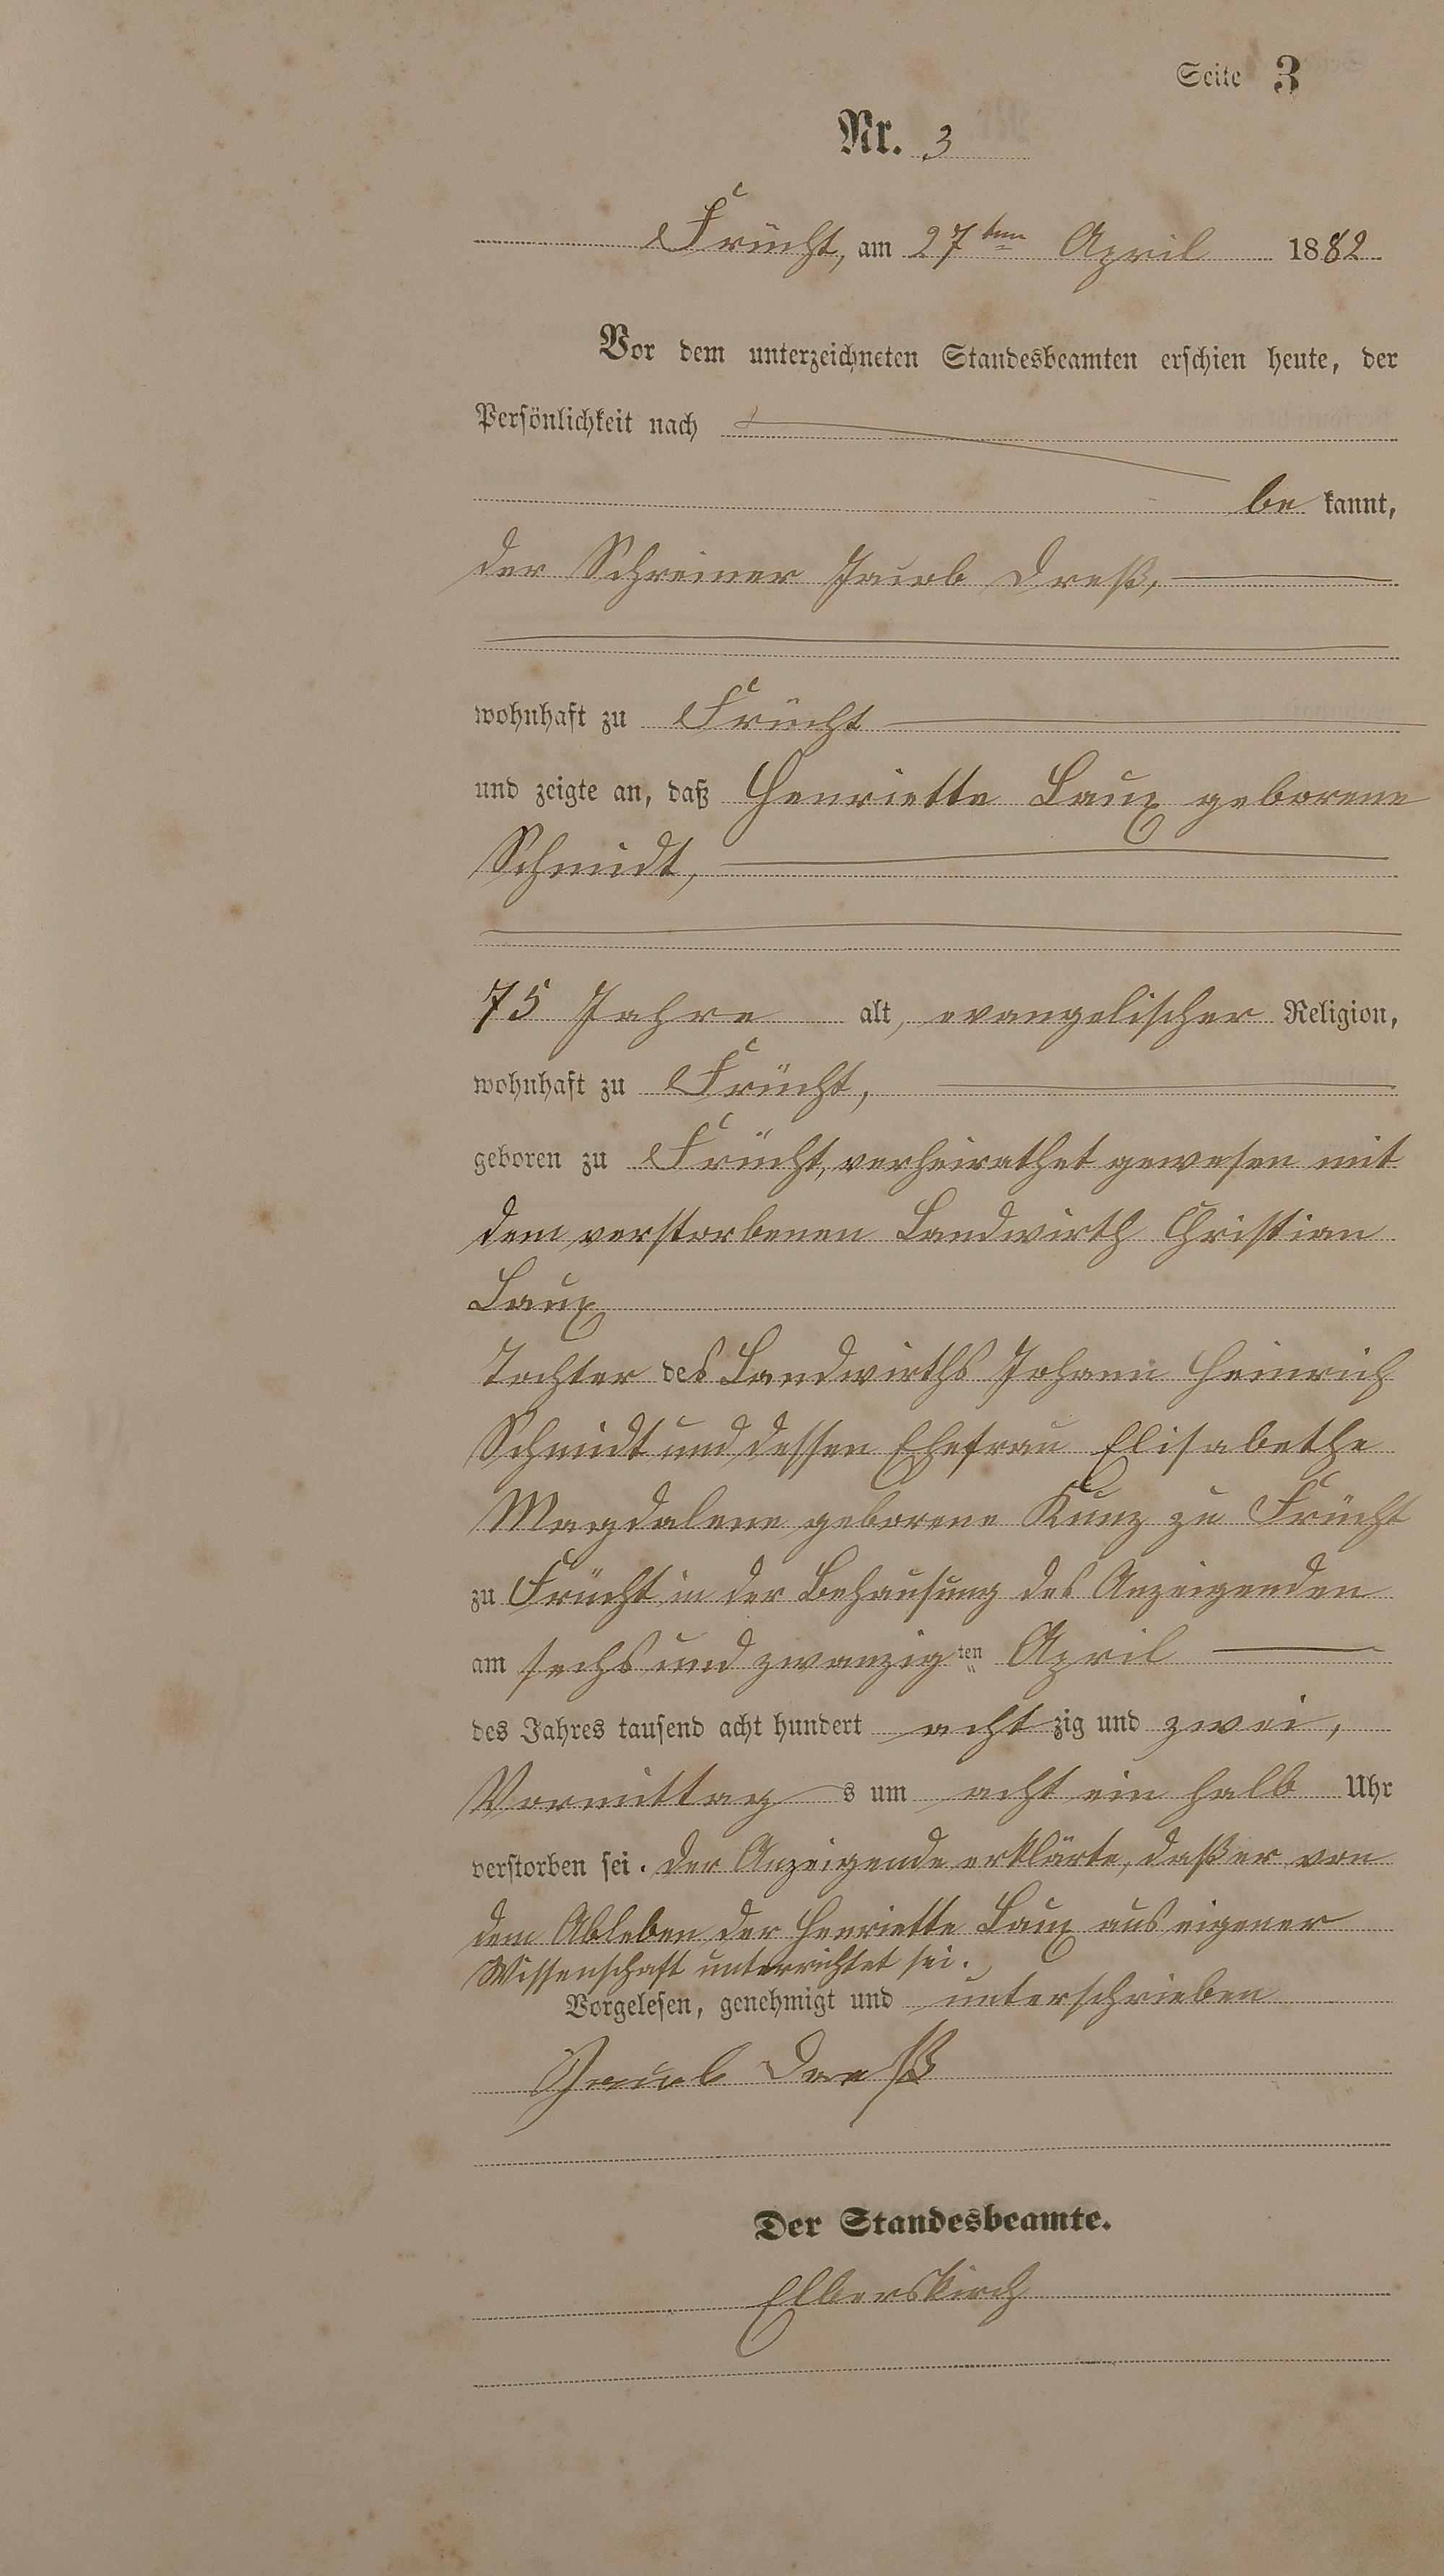 Seite 3
Nr. 3
Frücht, am 27ten April 1882
Vor dem unterzeichneten Standesbeamten erschien heute, der
Persönlichkeit nach
be kannt,
der Schreiner Jacob Dreß,
wohnhaft zu Frücht
und zeigte an, daß Henriette Laux geborene
Schmidt,
75 Jahre alt, evangelischer Religion,
wohnhaft zu Frücht,
geboren zu Frücht, verheirathet gewesen mit
dem verstorbenen Landwirth Christian
Laux
Tochter des Landwirths Johann Heinrich
Schmidt und dessen Ehefrau Elisabethe
Magdalene geborene Kunz zu Frücht
zu Frücht in der Behausung des Anzeigenden
am sechs und zwanzigten April
des Jahres tausend acht hundert achtzig und zwei,
Vormittags um acht ein halb Uhr
verstorben sei. Der Anzeigende erklärte, daß er von
dem Ableben der Henriette Laux aus eigener
Wissenschaft unterrichtet sei.
Vorgelesen, genehmigt und unterschrieben
Jacob Dreß
Der Standesbeamte.
Elberskirch